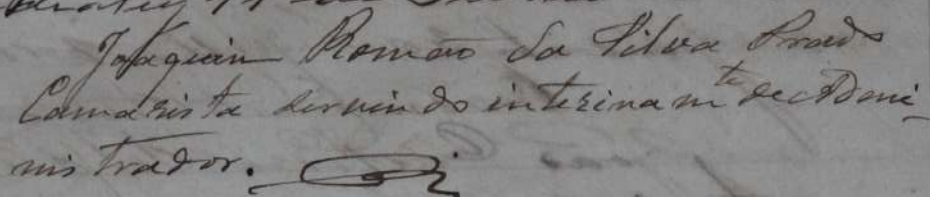 Joaquim Romão da Silva Prado
Camarista servindo interinam.te de Admi-
nistrador.